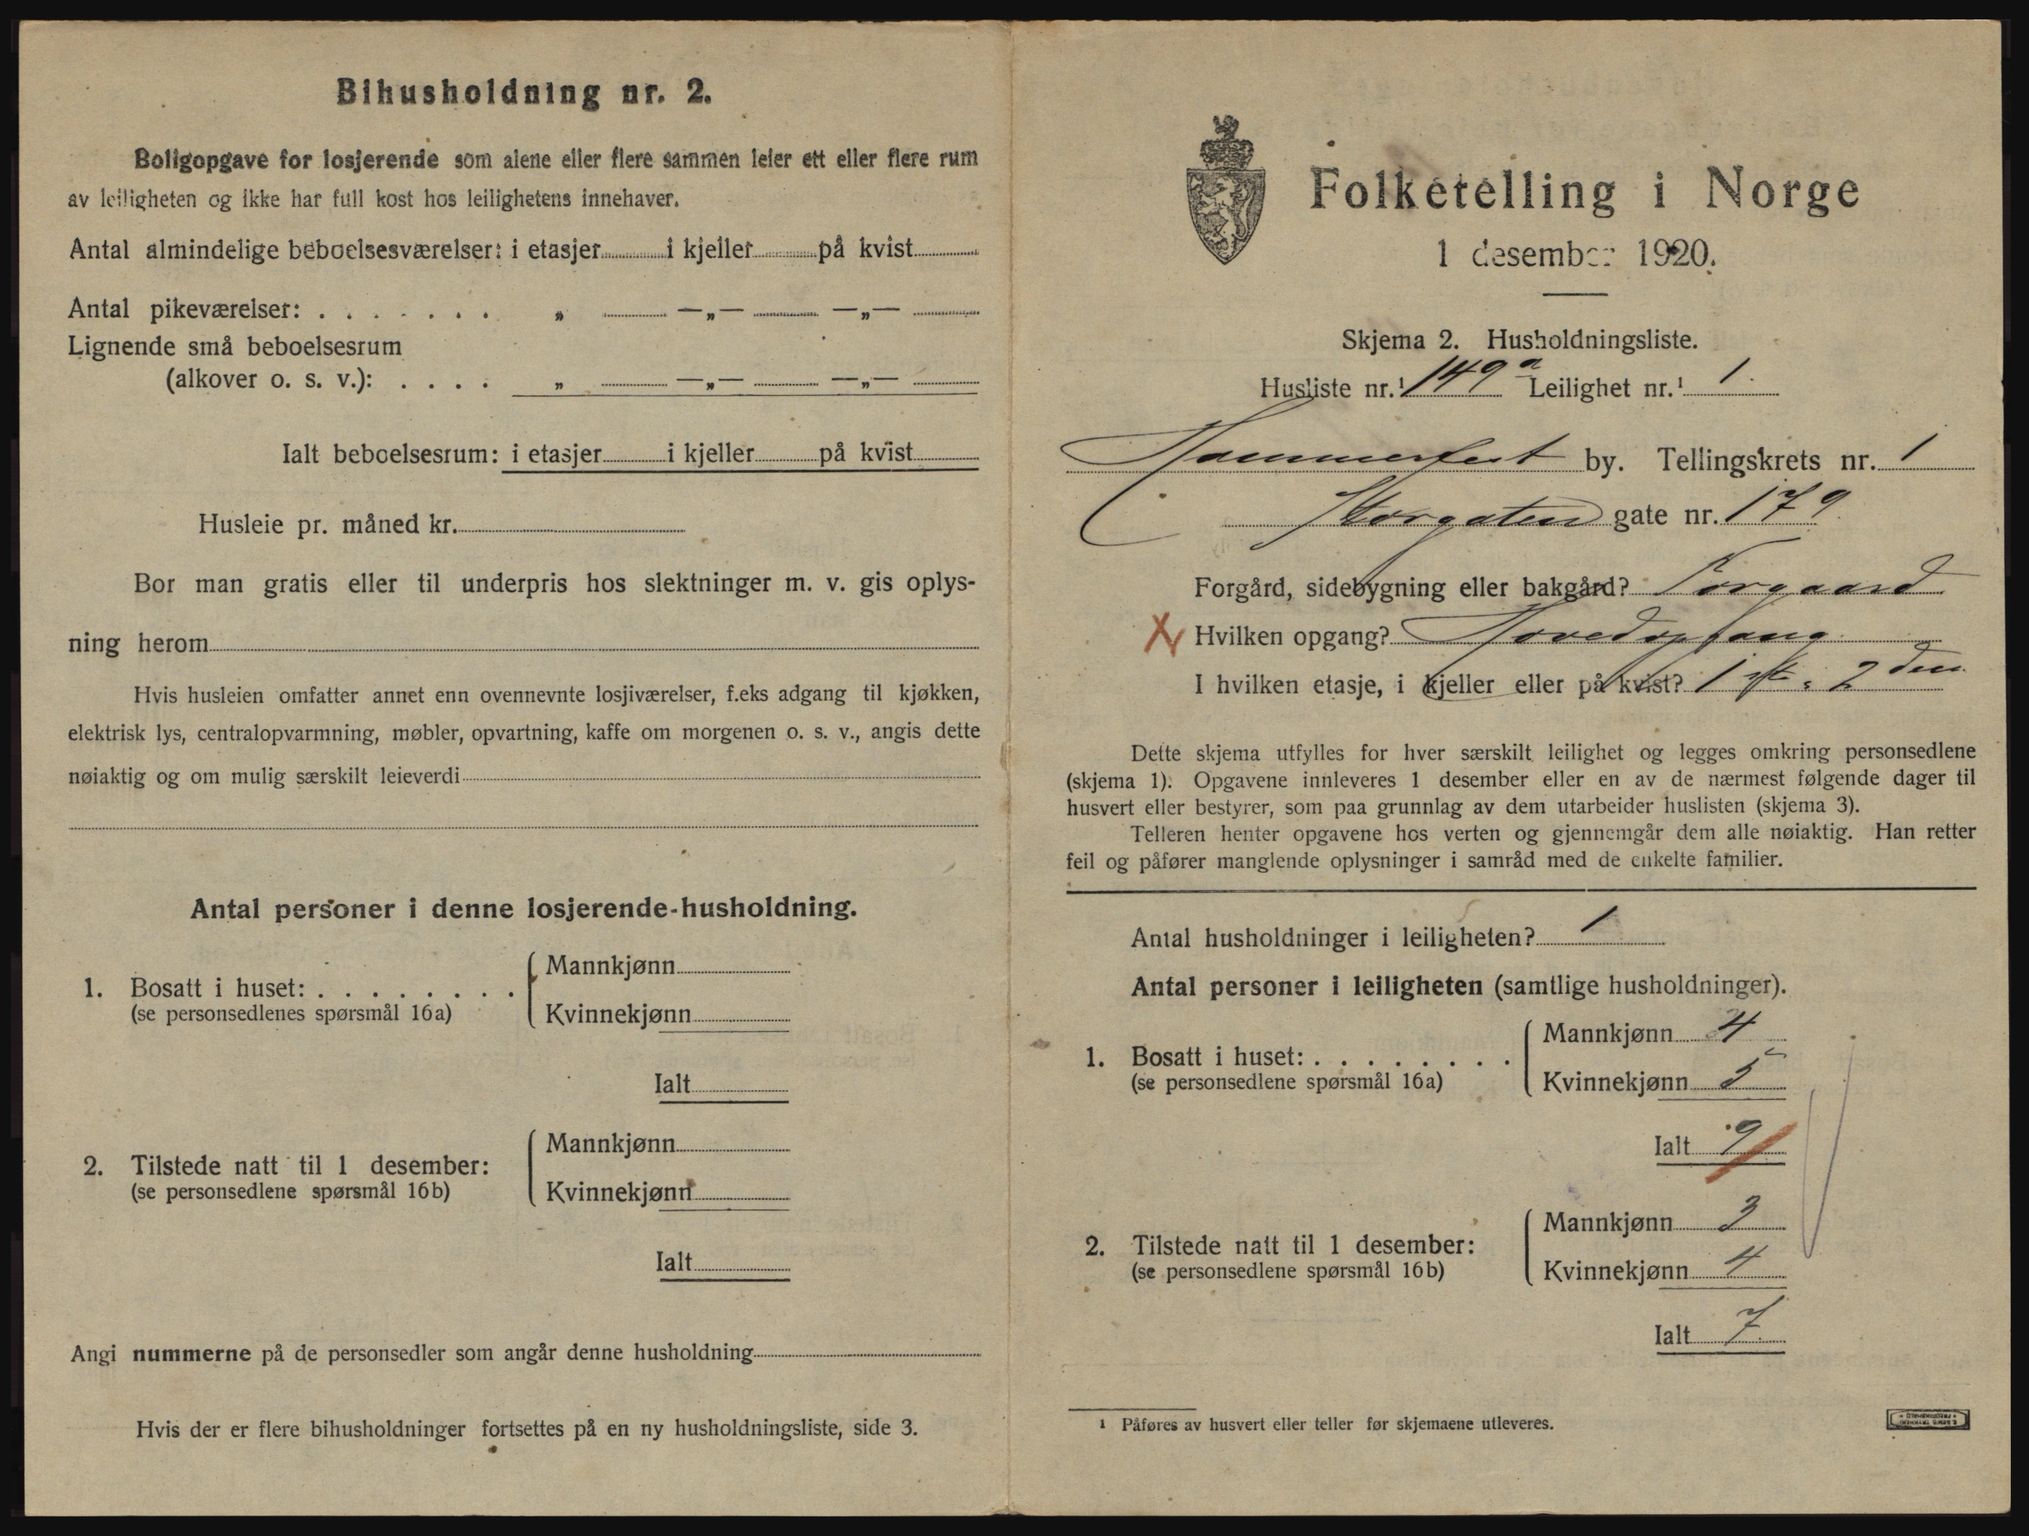 Bihusholdning nr. 2.
Boligopgave for losjerende som alene eller flere sammen leier ett eller flere rum
av leiligheten og ikke har full kost hos leilighetens innehaver.
Antal almindelige beboelsesværelser: i etasjer i kjeller på kvist
Antal pikeværelser: . . . . . . . „ —„— —„—
Lignende små beboelsesrum
(alkover o. s. v.): . . . . „ —„— —„—
Ialt beboelsesrum: i etasjer i kjeller på kvist
Husleie pr. måned kr.
Bor man gratis eller til underpris hos slektninger m. v. gis oplys-
ning herom
Hvis husleien omfatter annet enn ovennevnte losjiværelser, f.eks adgang til kjøkken,
elektrisk lys, centralopvarmning, møbler, opvartning, kaffe om morgenen o. s. v., angis dette
nøiaktig og om mulig særskilt leieverdi
Antal personer i denne losjerende-husholdning.
1. Bosatt i huset: . . . . . . . .
(se personsedlenes spørsmål 16a)
Mannkjønn
Kvinnekjønn
Ialt
2. Tilstede natt til 1 desember:
(se personsedlene spørsmål 16b)
Mannkjønn
Kvinnekjønn
Ialt
Angi nummerne på de personsedler som angår denne husholdning
Hvis der er flere bihusholdninger fortsettes på en ny husholdningsliste, side 3.
Folketelling i Norge
1 desember 1920.
Skjema 2. Husholdningsliste.
Husliste nr.¹ 149a Leilighet nr.¹ 1.
Hammerfest by. Tellingskrets nr. 1
Storgaten gate nr. 179
Forgård, sidebygning eller bakgård? Forgaard
X Hvilken opgang? Hovedopgang
I hvilken etasje, i kjeller eller på kvist? 1ste. 2den.
Dette skjema utfylles for hver særskilt leilighet og legges omkring personsedlene
(skjema 1). Opgavene innleveres 1 desember eller en av de nærmest følgende dager til
husvert eller bestyrer, som paa grunnlag av dem utarbeider huslisten (skjema 3).
Telleren henter opgavene hos verten og gjennemgår dem alle nøiaktig. Han retter
feil og påfører manglende oplysninger i samråd med de enkelte familier.
Antal husholdninger i leiligheten? 1
Antal personer i leiligheten (samtlige husholdninger).
1. Bosatt i huset: . . . . . . . .
(se personsedlene spørsmål 16a)
Mannkjønn 4
Kvinnekjønn 5
Ialt 9
2. Tilstede natt til 1 desember:
(se personsedlene spørsmål 16b)
Mannkjønn 3
Kvinnekjønn 4
Ialt 7.
¹ Påføres av husvert eller teller før skjemaene utleveres.